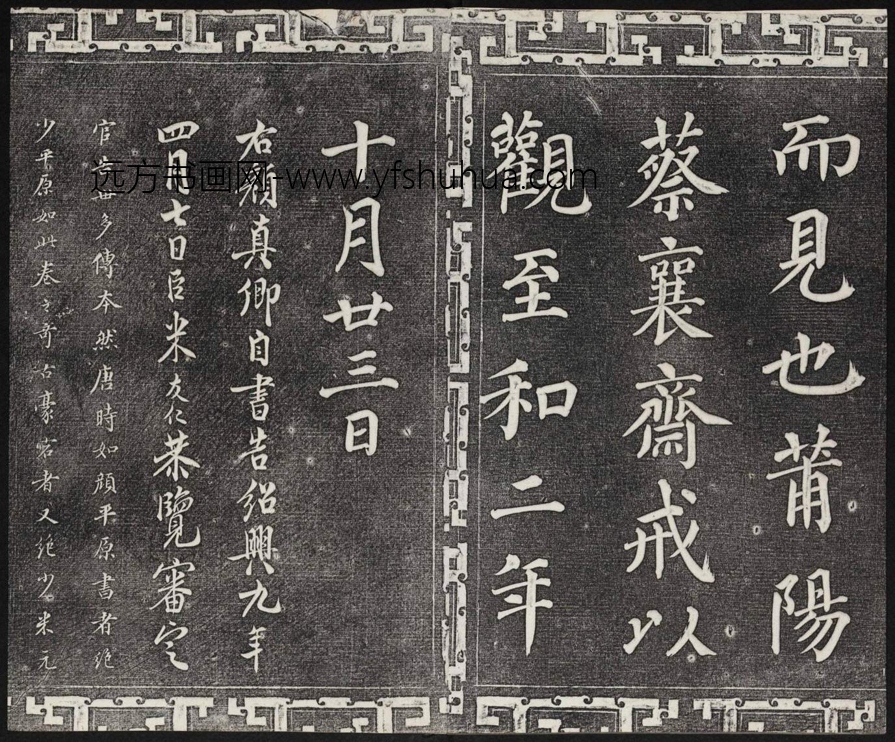 而見也莆陽
蔡襄齋戒以
觀至和二年
十月廿三日
右顏真卿自書告紹興九年
四月七日臣米友仁恭覽審定
官告世多傳本然唐時如顔平原書者絶
少平原如此卷之奇古豪宕者又絶少米元
远方书画网-www.yfshuhua.com